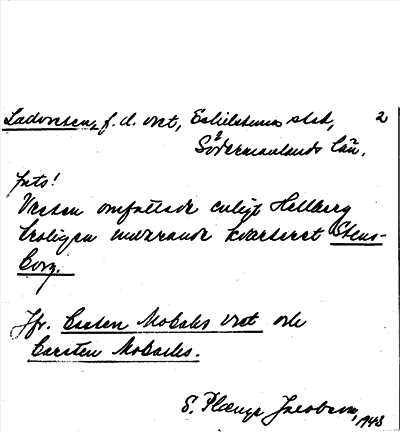 Ladvreten, f.d. vret, Eskilstuna stad, 2
Södermanlands län.
Jnts!
Vreten omfattade enligt Hellberg
troligen nuvarande kvarteret Stens-
borg.
Jfr. Carsten Mobacks vret och
Carsten Mobacks.
S. Jacobson, 1943